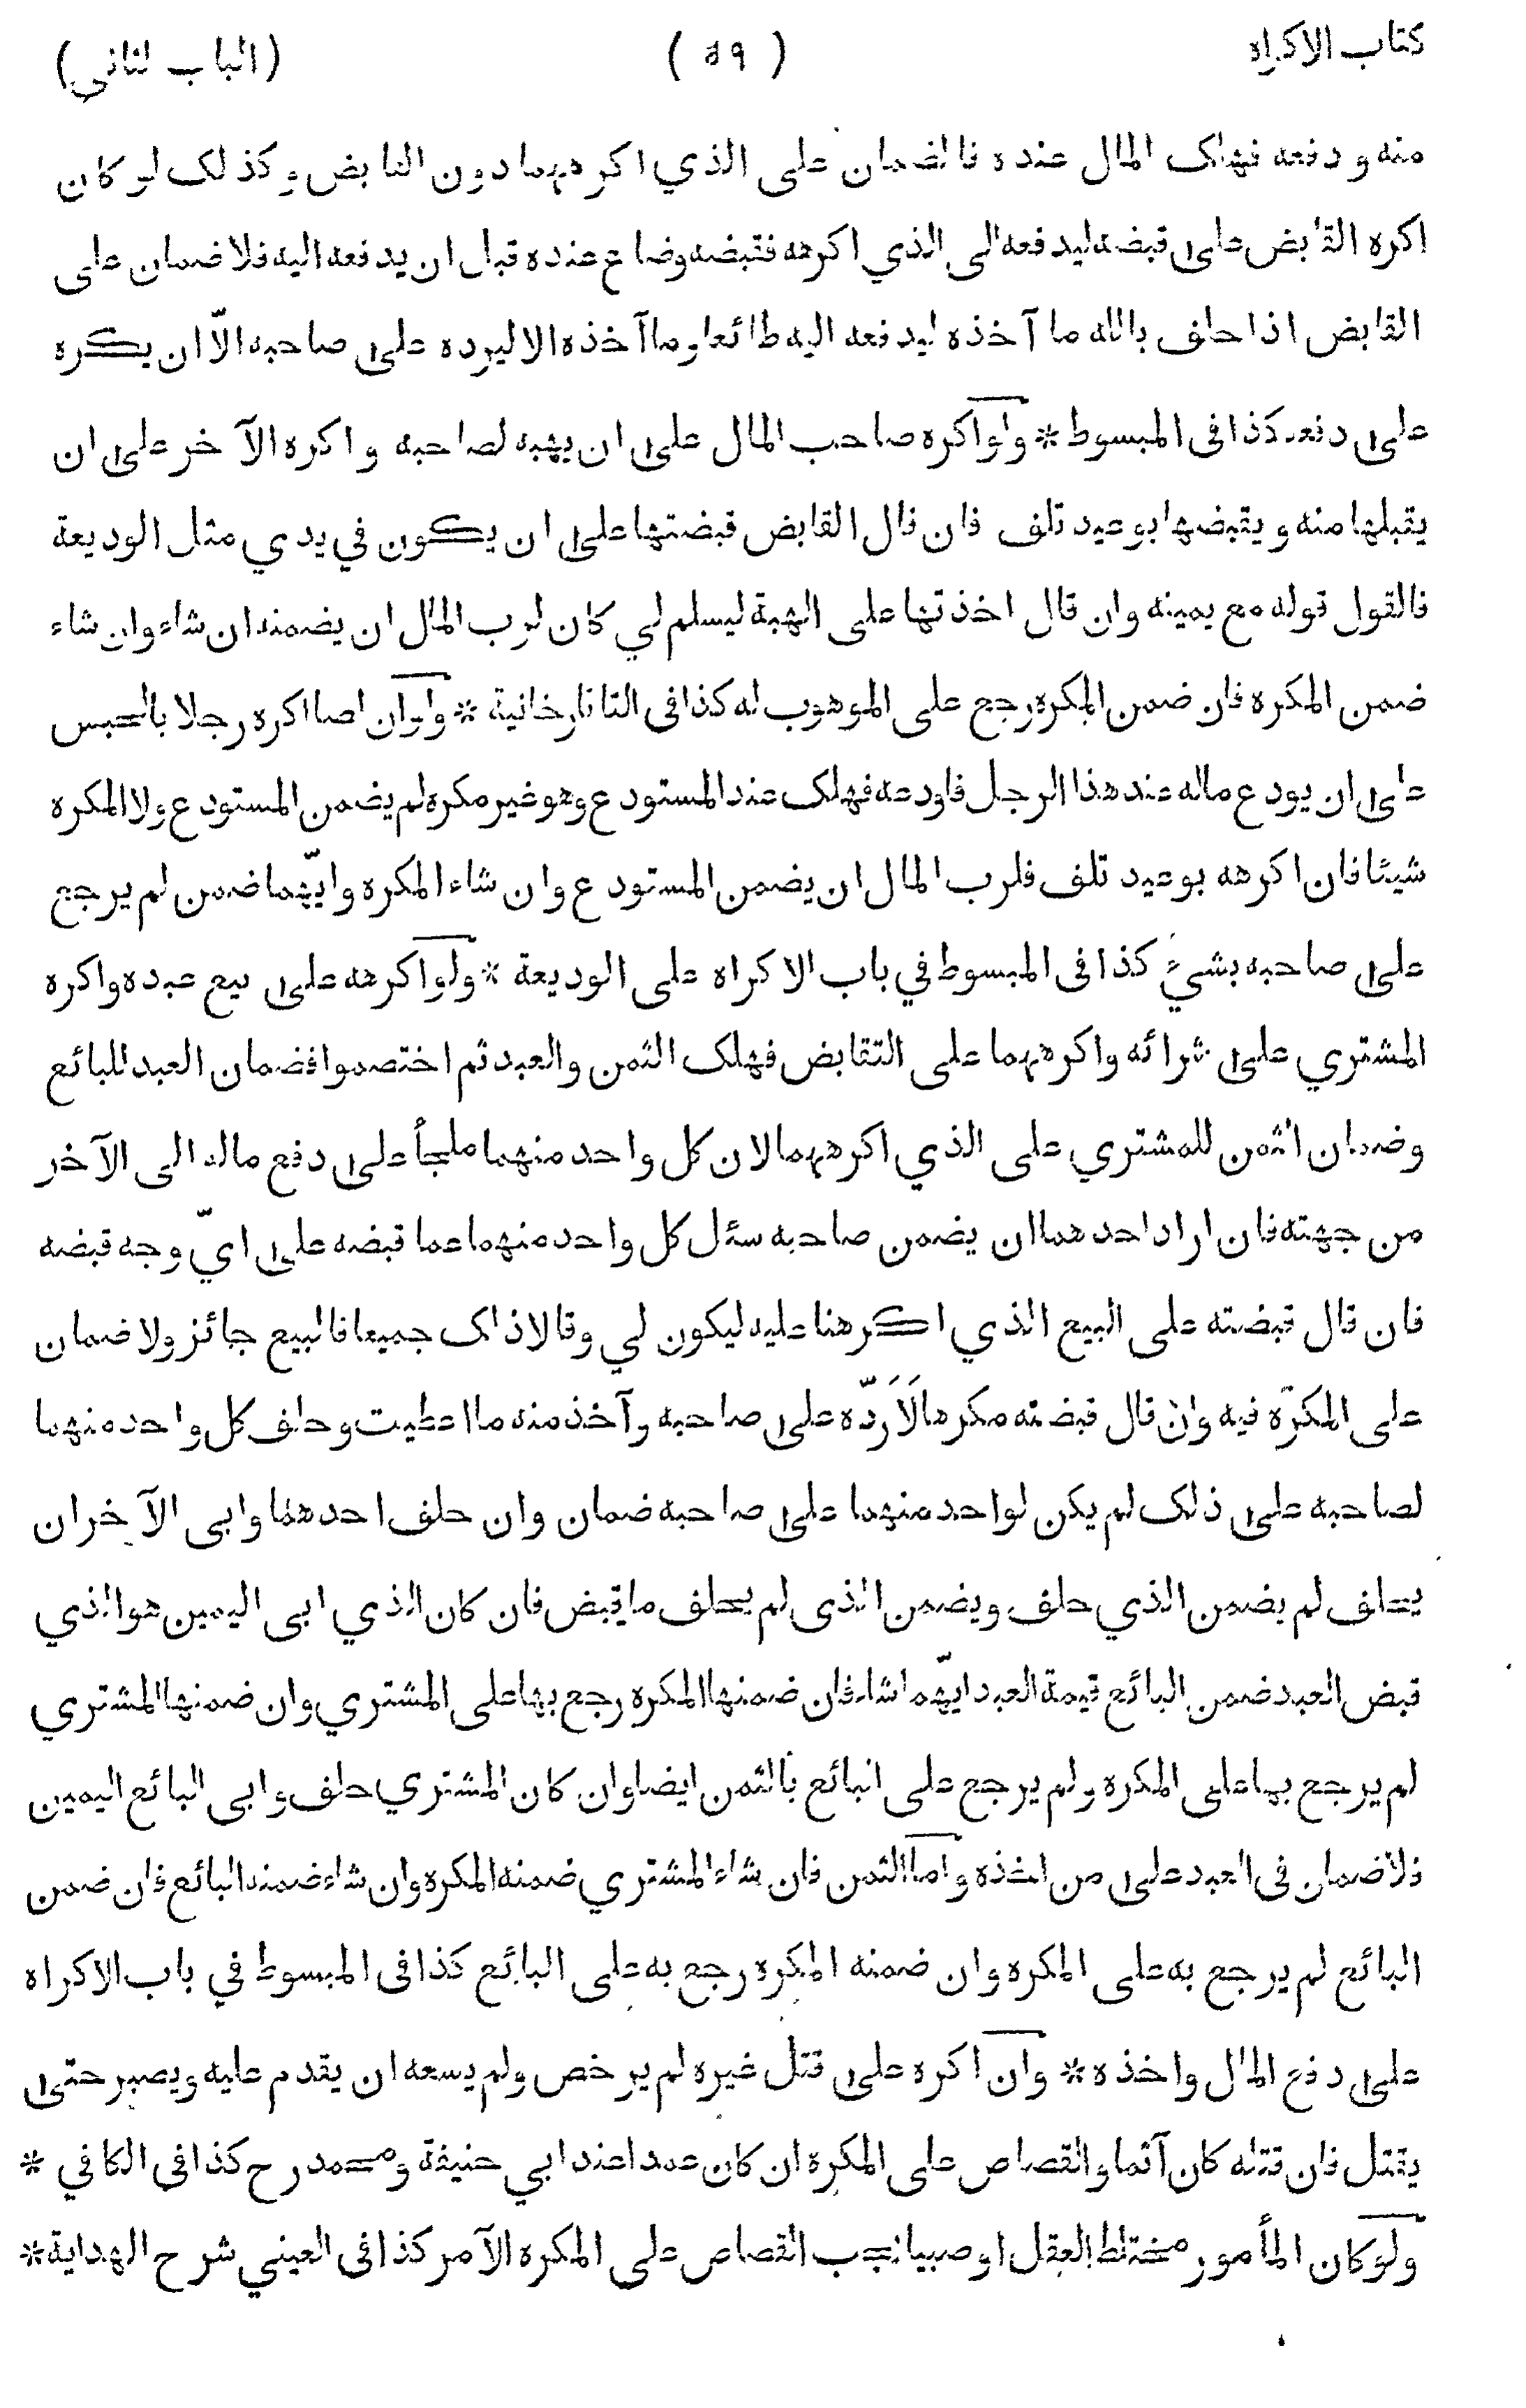 كتاب الاكراه ( ٥٩ ) (الباب الثاني)
منه و دفعه فهلك المال عنده فالضمان على الذي اكرههما دون القابض وكذلك لو كان
اكره القابض على قبضه ليدفعه الى الذي اكرهه فقبضه وضاع عنده قبل ان يدفعه اليه فلا ضمان على
القابض اذا حلف بالله ما آخذه ليدفعه اليه طائعا وما آخذه الا ليرده على صاحبه الاّ ان يكره
على دفعه كذا في المبسوط * ولو اكره صاحب المال على ان يهبه لصاحبه واكره الآخر على ان
يقبلها منه ويقبضها بوعيد تلف فان قال القابض قبضتها على ان يكون في يدي مثل الوديعة
فالقول قوله مع يمينه وان قال اخذتها على الهبة ليسلم لي كان لرب المال ان يضمنه ان شاء وان شاء
ضمن المكره فان ضمن المكره رجع على الموهوب له كذا في التاتارخانية * ولو ان لصا اكره رجلا بالحبس
على ان يودع ماله عند هذا الرجل فاودعه فهلك عند المستودع وهو غير مكره لم يضمن المستودع ولا المكره
شيئا فان اكرهه بوعيد تلف فلرب المال ان يضمن المستودع وان شاء المكره وايّهما ضمن لم يرجع
على صاحبه بشيء كذا في المبسوط في باب الاكراه على الوديعة * ولو اكرهه على بيع عبده واكره
المشتري على شرائه واكرههما على التقابض فهلك الثمن والعبد ثم اختصموا فضمان العبد للبائع
وضمان الثمن للمشتري على الذي اكرههما لان كل واحد منهما ملجأ على دفع ماله الى الآخر
من جهته فان اراد احدهما ان يضمن صاحبه سئل كل واحد منهما عما قبضه على ايّ وجه قبضه
فان قال قبضته على البيع الذي اكرهنا عليه ليكون لي وقالا ذلك جميعا فالبيع جائز ولا ضمان
على المكره فيه وان قال قبضته مكرها لَاَردّه على صاحبه وآخذ منه ما اعطيت وحلف كل واحد منهما
لصاحبه على ذلك لم يكن لواحد منهما على صاحبه ضمان وان حلف احدهما وابى الآخر ان
يحلف لم يضمن الذي حلف ويضمن الذي لم يحلف ما قبض فان كان الذي ابى اليمين هو الذي
قبض العبد ضمن البائع قيمة العبد ايّهما شاء فان ضمنها المكره رجع بها على المشتري وان ضمنها المشتري
لم يرجع بها على المكره ولم يرجع على البائع بالثمن ايضا وان كان المشتري حلف وابى البائع اليمين
فلا ضمان في العبد على من اخذه واما الثمن فان شاء المشتري ضمنه المكره وان شاء ضمنه البائع فان ضمن
البائع لم يرجع به على المكره وان ضمنه المكره رجع به على البائع كذا في المبسوط في باب الاكراه
على دفع المال واخذه * وان اكره على قتل غيره لم يرخص ولم يسعه ان يقدم عليه ويصبر حتى
يقتل فان قتله كان آثما والقصاص على المكره ان كان عمدا عند ابي حنيفة ومحمد رح كذا في الكافي *
ولو كان المأمور مختلط العقل او صبيا يجب القصاص على المكره الآمر كذا في العيني شرح الهداية *